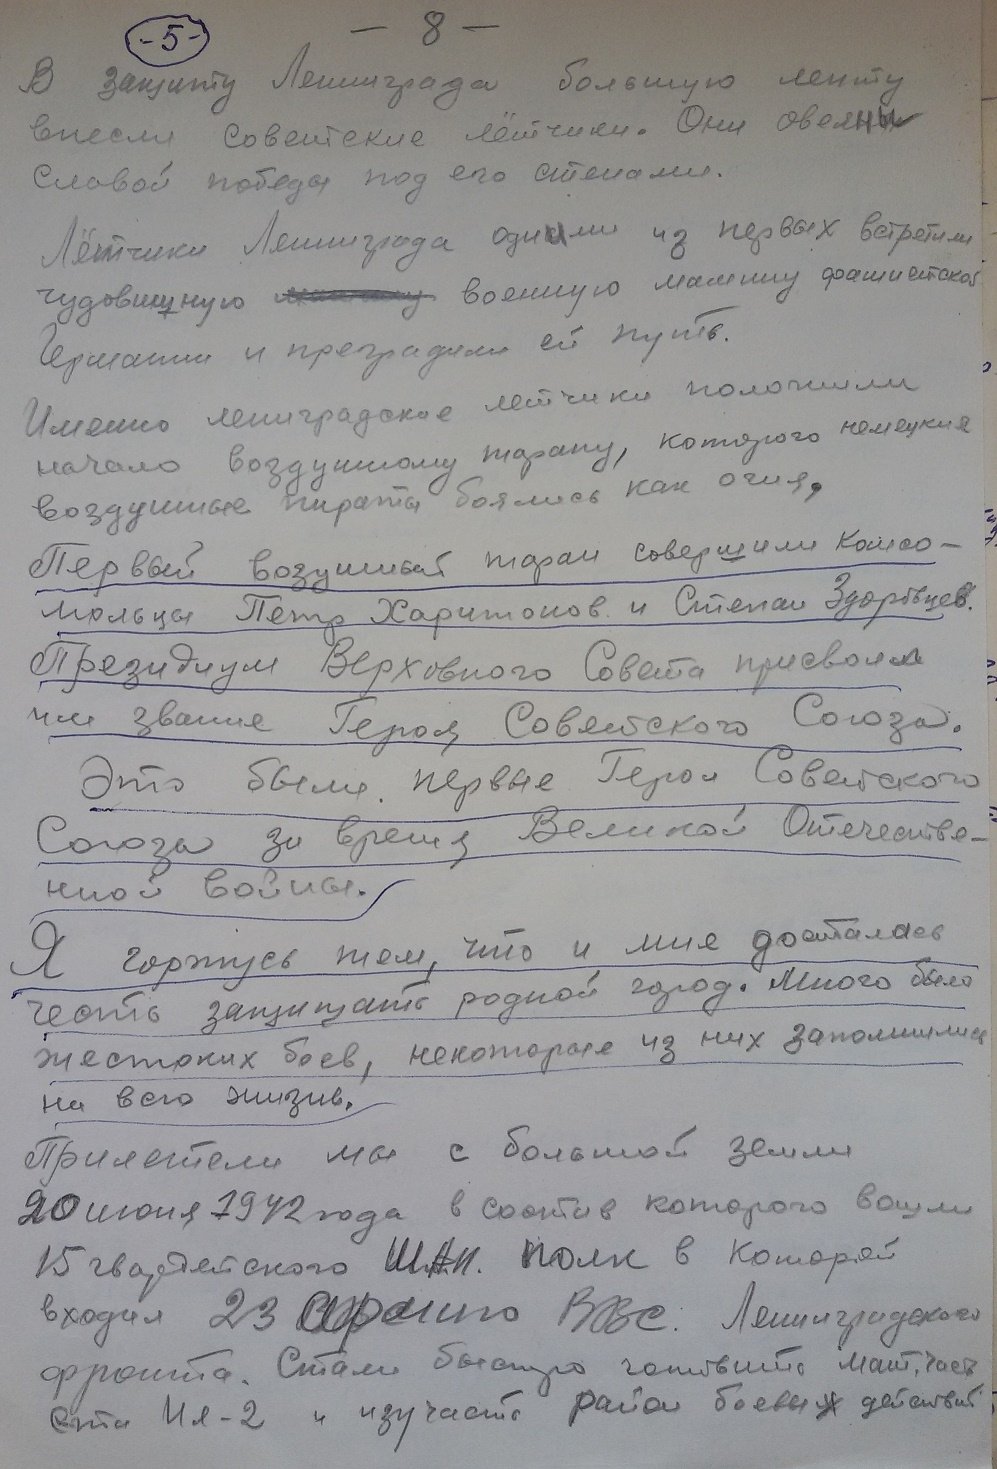 -5-
- 8 -
В защиту Ленинграда большую лепту
внесли советские лётчики. Они овеяны
славой победы под его стенами.
Лётчики Ленинграда одними из первых встретили
чудовищную военную машину фашистской
Германии и преградили ей путь.
Именно ленинградские летчики положили
начало воздушному тарану, которого немецкие
воздушные пираты боялись как огня,
Первый воздушный таран совершили комсо-
мольцы Петр Харитонов и Степан Здоровцев.
Президиум Верховного Совета присвоил
им звание Героя Советского Союза.
Это были первые Герои Советского
Союза за время Великой Отечестве-
нной войны.
Я горжусь тем, что и мне досталась
честь защищать родной город. Много было
жестоких боев, некоторые из них запомнились
на всю жизнь.
Прилетели мы с большой земли
20 июня 1942 года в состав которого вошли
15 гвардейского ШАП. полк в который
входил 23 Армию ВВС. Ленинградского
фронта. Стали быстро готовить мат. часть
Ил-2 и изучать район боевых действий